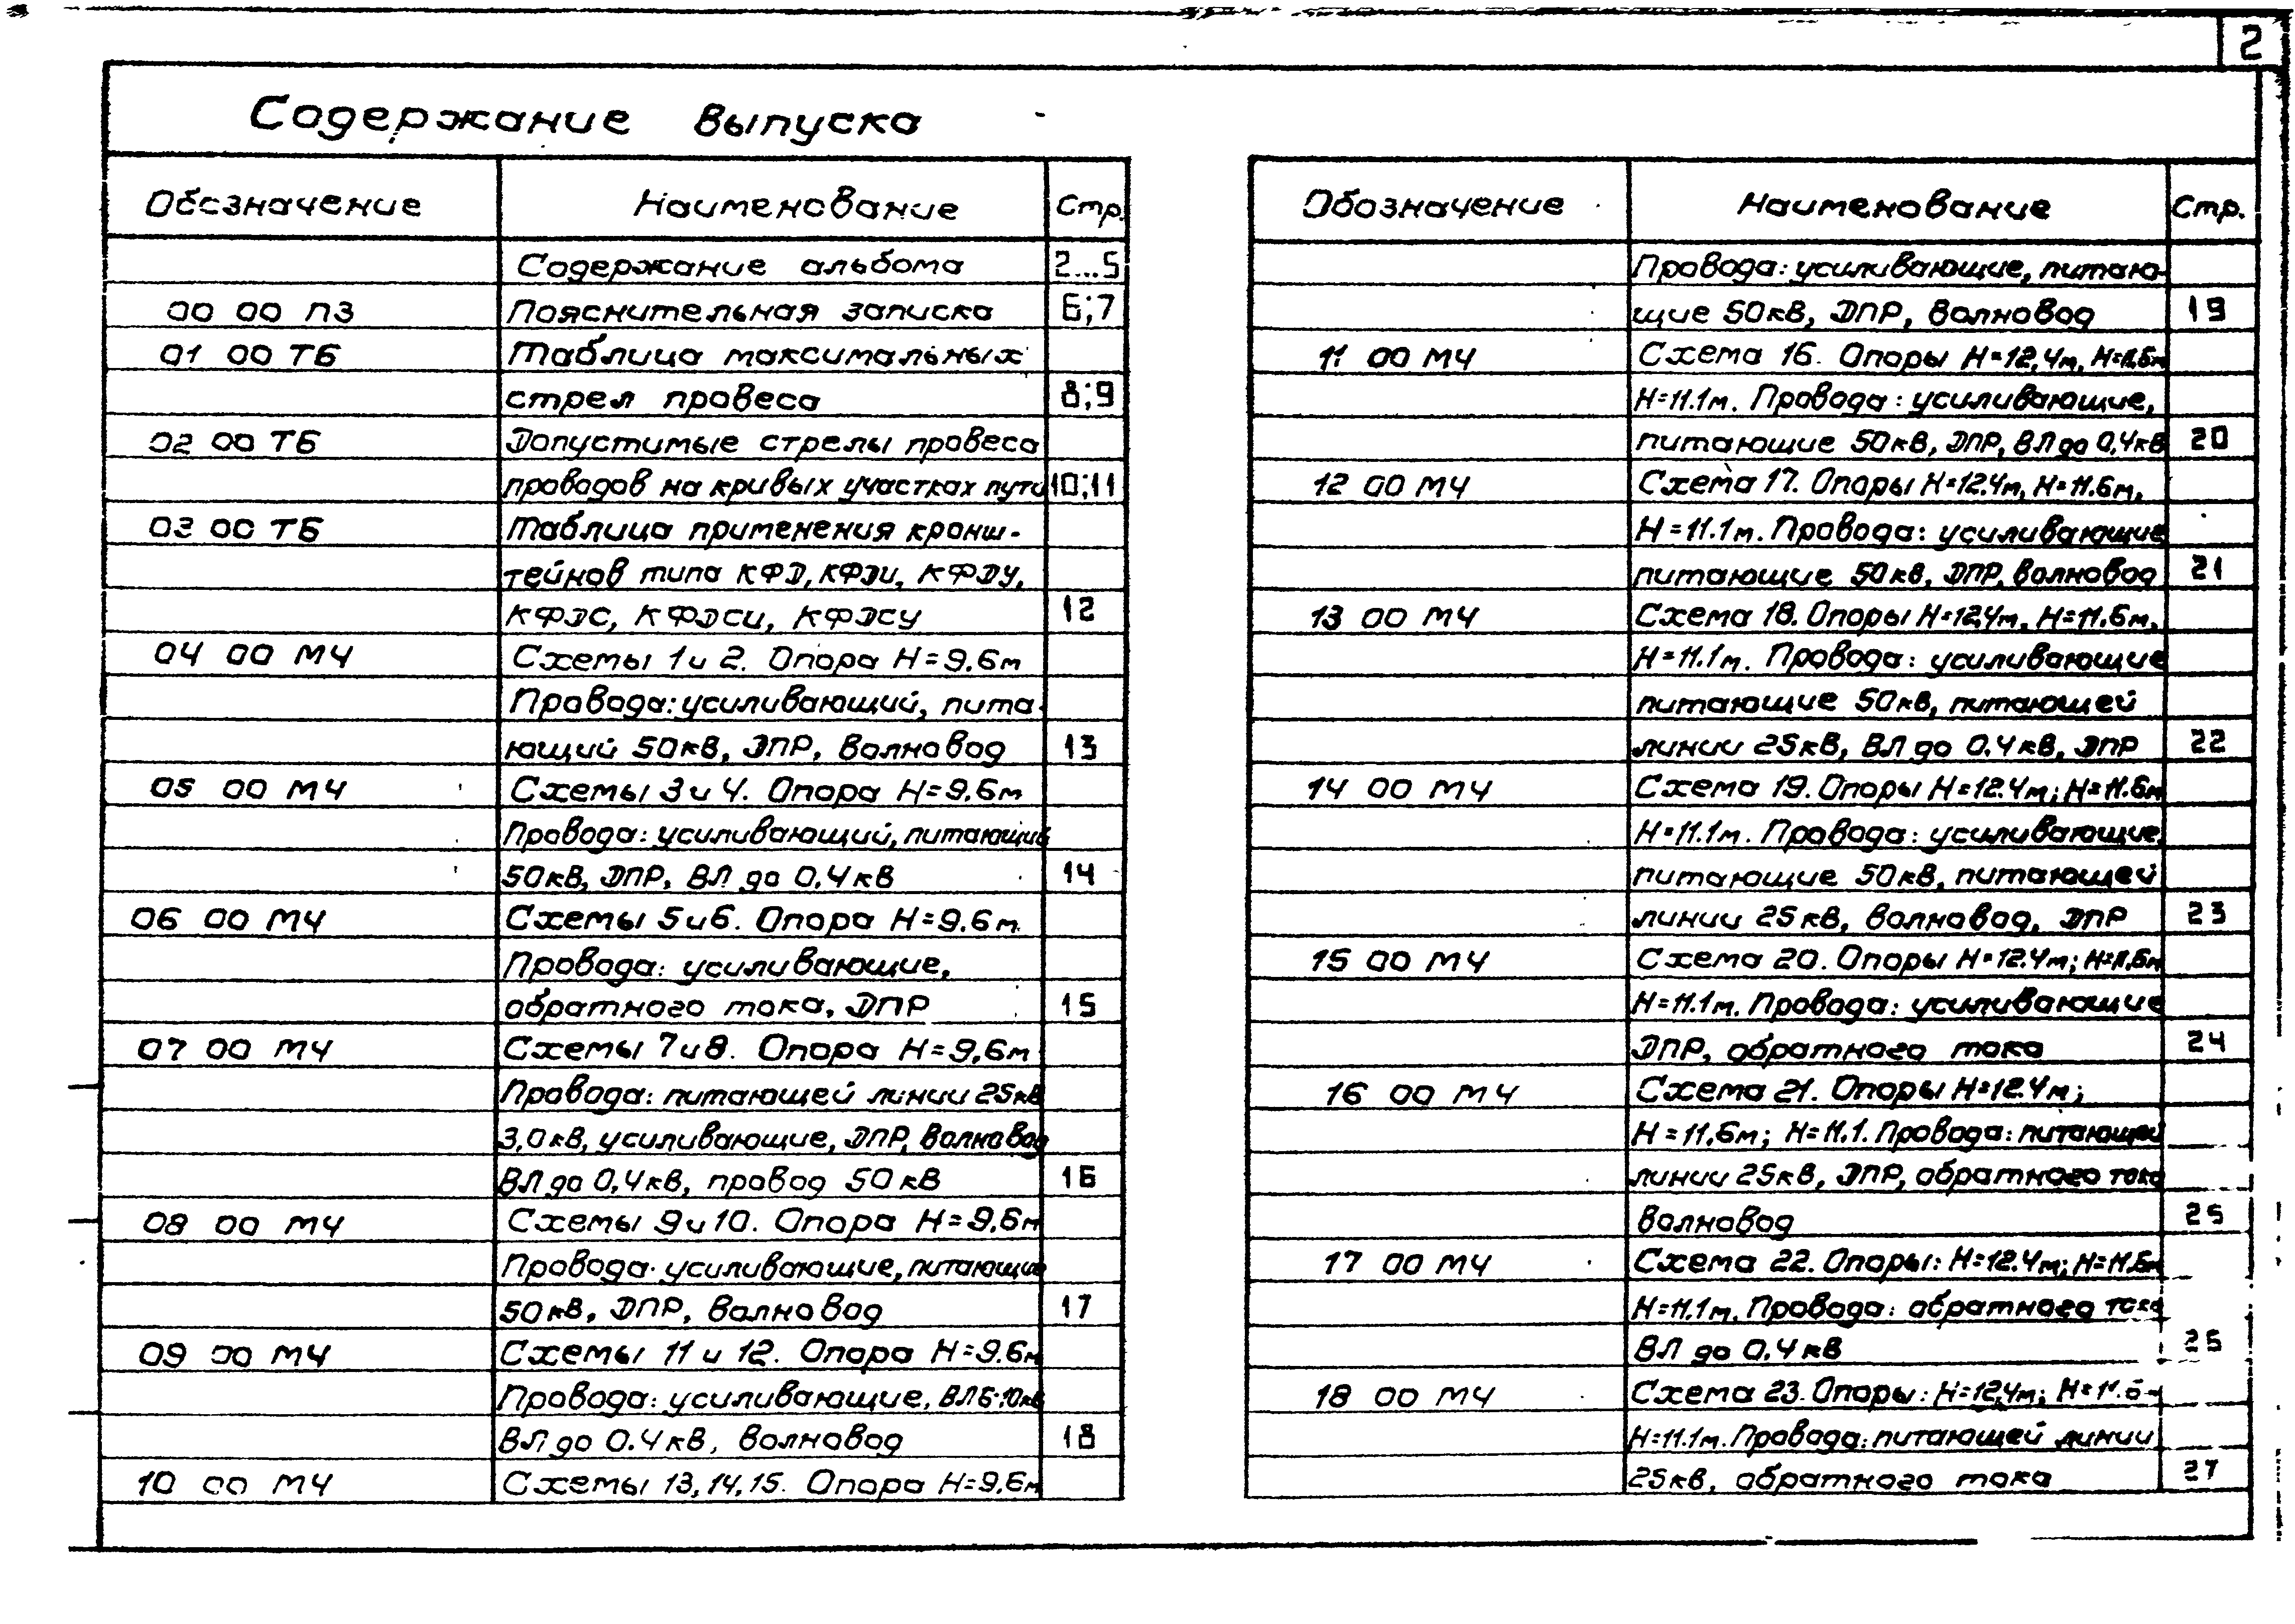 2
Содержание выпуска
Обозначение Наименование Стр.
Содержание альбома 2...5
00 00 ПЗ Пояснительная записка 6;7
01 00 ТБ Таблица максимальных
стрел провеса 8;9
02 00 ТБ Допустимые стрелы провеса
проводов на кривых участках пути 10;11
03 00 ТБ Таблица применения кронш-
тейнов типа КФД, КФДИ, КФДУ,
КФДС, КФДСИ, КФДСУ 12
04 00 МЧ Схемы 1 и 2. Опора Н=9.6м
Провода: усиливающий, пита-
ющий 50кВ, ДПР, волновод 13
05 00 МЧ Схемы 3 и 4. Опора Н=9.6м
Провода: усиливающий, питающий
50кВ, ДПР, ВЛ до 0,4кВ 14
06 00 МЧ Схемы 5 и 6. Опора Н=9.6м
Провода: усиливающие,
обратного тока, ДПР 15
07 00 МЧ Схемы 7 и 8. Опора Н=9,6м
Провода: питающей линии 25кВ
3,0кВ, усиливающие, ДПР, волновод
ВЛ до 0,4кВ, провод 50кВ 16
08 00 МЧ Схемы 9 и 10. Опора Н=9.6м
Провода: усиливающие, питающие
50кВ, ДПР, волновод 17
09 00 МЧ Схемы 11 и 12. Опора Н=9.6м
Провода: усиливающие, ВЛ 6;10кВ
ВЛ до 0.4кВ, волновод 18
10 00 МЧ Схемы 13, 14, 15. Опора Н=9,6м
Обозначение Наименование Стр.
Провода: усиливающие, питаю-
щие 50кВ, ДПР, волновод 19
11 00 МЧ Схема 16. Опоры Н=12,4м, Н=11,6м
Н=11.1м. Провода: усиливающие,
питающие 50кВ, ДПР, ВЛ до 0,4кВ 20
12 00 МЧ Схема 17. Опоры Н=12.4м, Н=11.6м,
Н=11.1м. Провода: усиливающие
питающие 50кВ, ДПР, волновод 21
13 00 МЧ Схема 18. Опоры Н=12,4м, Н=11.6м,
Н=11.1м. Провода: усиливающие
питающие 50кВ, питающей
линии 25кВ, ВЛ до 0.4кВ, ДПР 22
14 00 МЧ Схема 19. Опоры Н=12.4м; Н=11.6м
Н=11.1м. Провода: усиливающие,
питающие 50кВ, питающей
линии 25кВ, волновод, ДПР 23
15 00 МЧ Схема 20. Опоры Н=12.4м; Н=11,6м
Н=11.1м. Провода: усиливающие
ДПР, обратного тока 24
16 00 МЧ Схема 21. Опоры Н=12.4м;
Н=11,6м; Н=11.1. Провода: питающей
линии 25кВ, ДПР, обратного тока
волновод 25
17 00 МЧ Схема 22. Опоры: Н=12.4м; Н=11,6м
Н=11.1м. Провода: обратного тока
ВЛ до 0.4кВ 26
18 00 МЧ Схема 23. Опоры: Н=12,4м; Н=11.6м
Н=11.1м. Провода: питающей линии
25кВ, обратного тока 27